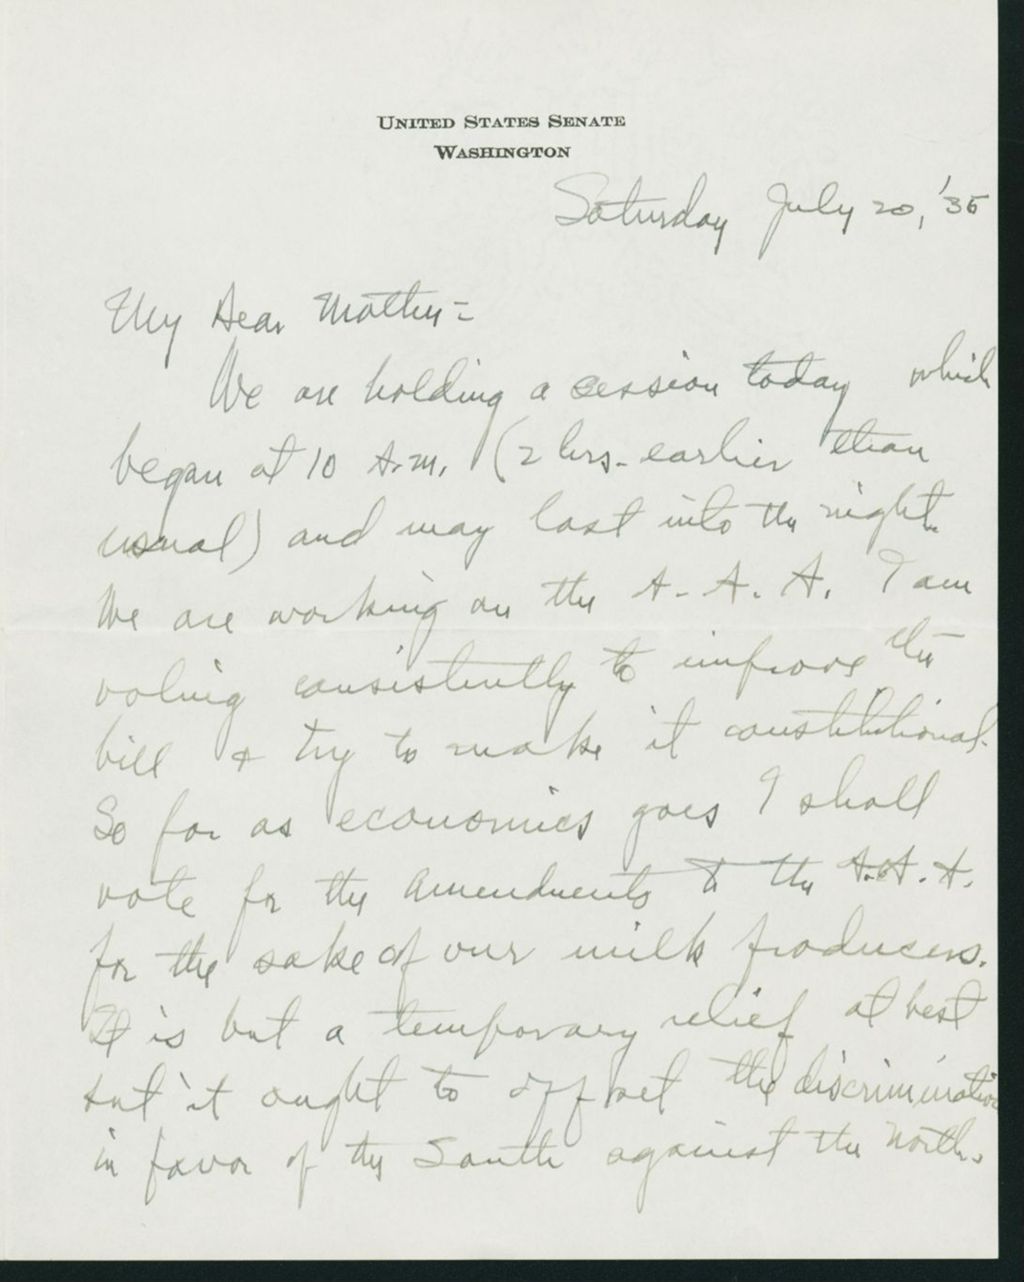 UNITED STATES SENATE
WASHINGTON
Saturday July 20, '35
My Dear Mother =
We are holding a session today which
began at 10 A.M. (2 hrs. earlier than
usual) and may last into the night.
We are working on the A.A.A. I am
voting consistently to improve the
bill & try to make it constitutional.
So far as economics goes I shall
vote for the amendments to the A.A.A.
for the sake of our milk producers.
It is but a temporary relief at best
but it ought to offset the discrimination
in favor of the South against the North.